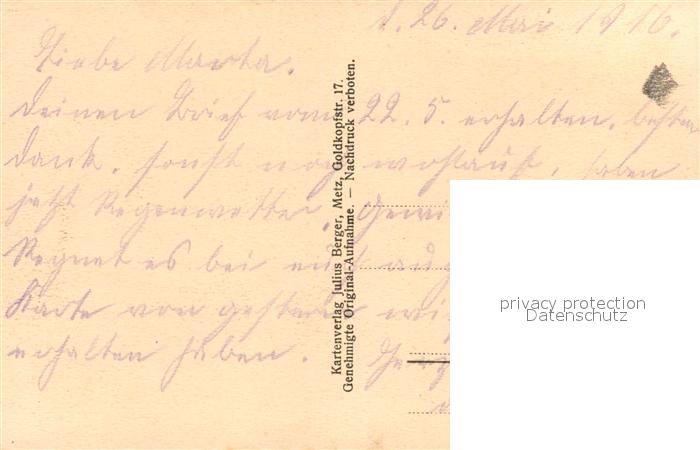 d. 26. Mai 1916.
Liebe Marta.
Deinen Brief vom 22. 5. erhalten, besten
Dank. sonst noch wohlauf, haben
jetzt Regenwetter,
Regnet es bei euch auch
Karte von gestern
erhalten haben.
Kartenverlag Julius Berger, Metz, Goldkopfstr. 17.
Genehmigte Original-Aufnahme. — Nachdruck verboten.
privacy protection
Datenschutz